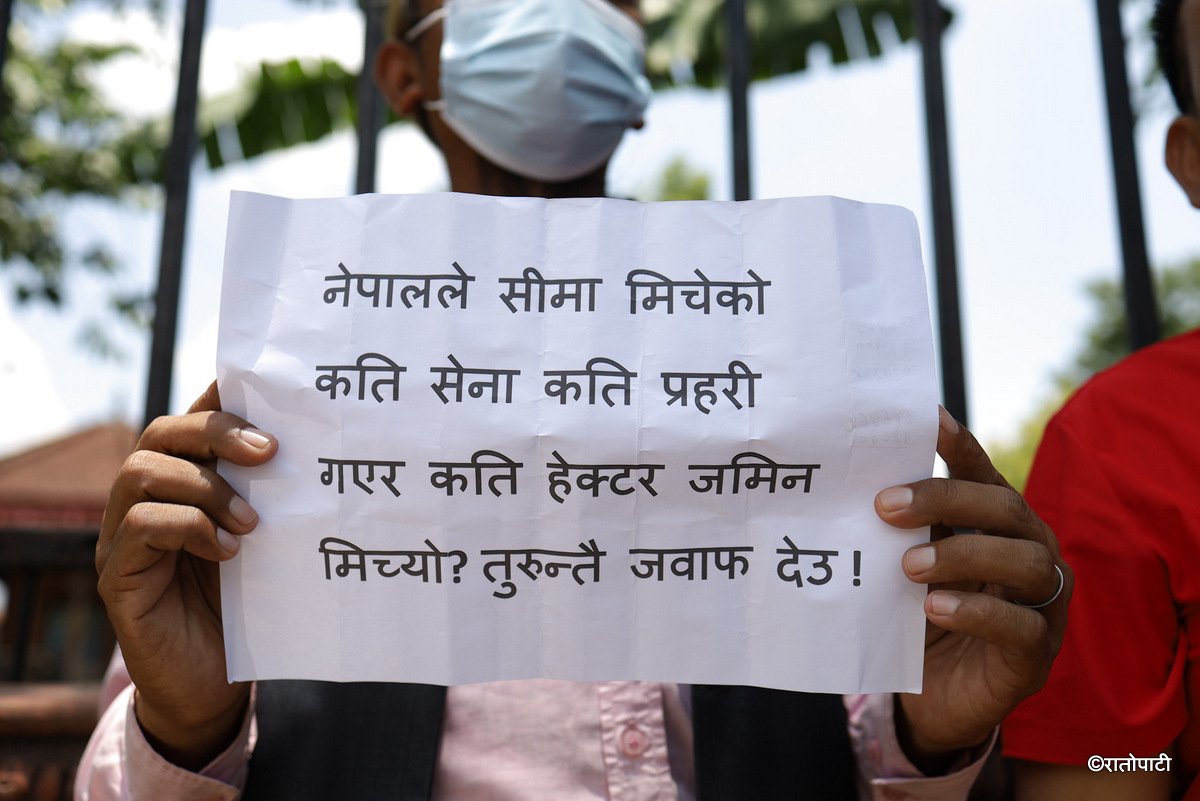 नेपालले सीमा मिचेको
कति सेना कति प्रहरी
गएर कति हेक्टर जमिन
मिच्यो? तुरुन्तै जवाफ देउ !
©रातोपाटी